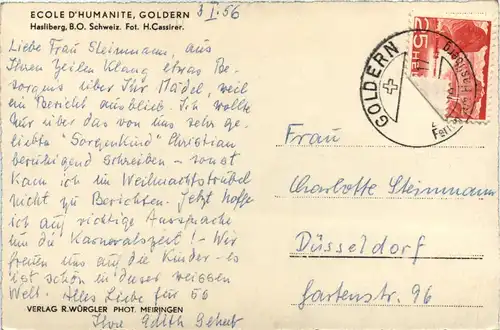 ECOLE D'HUMANITE, GOLDERN
Hasliberg, B.O. Schweiz. Fot. H. Cassirer.
3 I. 56
Liebe Frau Steinmann, aus
Ihren Zeilen klang etwas Be-
sorgnis über Ihr Mädel, weil
ein Bericht ausblieb. Ich wollte
nur über das von uns sehr ge-
liebte "Sorgenkind" Christian
beruhigend schreiben – sonst
kam ich im Weihnachtstrubel
nicht zu Berichten. Jetzt hoffe
ich auf richtige Aussprache
um die Karnevalszeit! – Wir
freuen uns auf die Kinder – es
ist schön in dieser weissen
Welt. Alles Liebe für 56
Ihre Edith Geheeb
VERLAG R. WÜRGLER PHOT. MEIRINGEN
GOLDERN
HELV
Frau
Charlotte Steinmann
Düsseldorf
Gartenstr. 96